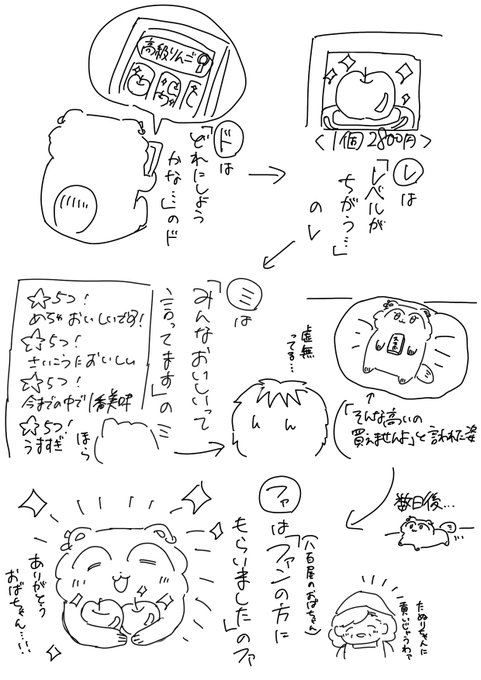 高級りんご
ドは
「どれにしよう
かな…」のド
〈1個2800円〉
レは
「レベルが
ちがう…」
のレ
ミは
「みんなおいしいって
言ってます」の
☆5つ!
めちゃおいしいです!
☆5つ!
さいこうにおいしい
☆5つ!
今までの中で1番美味
☆5つ!
うますぎ
ほら
虚無
ってる…
「そんな高いの
買えませんよ」と言われた姿
数日後…
ファは
(八百屋のおばちゃん)
「ファンの方に
もらいました」のファ
ありがとう
おばちゃん…!!
たぬりちゃんに
貢いじゃうわァ